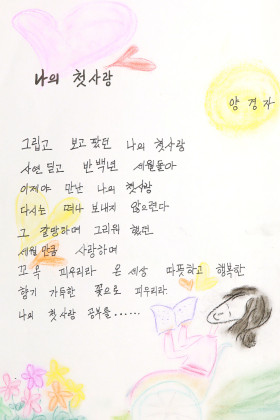 나의 첫사랑
양경자
그립고 보고팠던 나의 첫사랑
사연 딛고 반백년 세월돌아
이제야 만난 나의 첫사랑
다시는 떠나 보내지 않으련다
그 갈망하며 그리워 했던
세월만큼 사랑하며
꼬옥 피우리라 온세상 따뜻하고 행복한
향기 가득한 꽃으로 피우리라
나의 첫사랑 공부를......